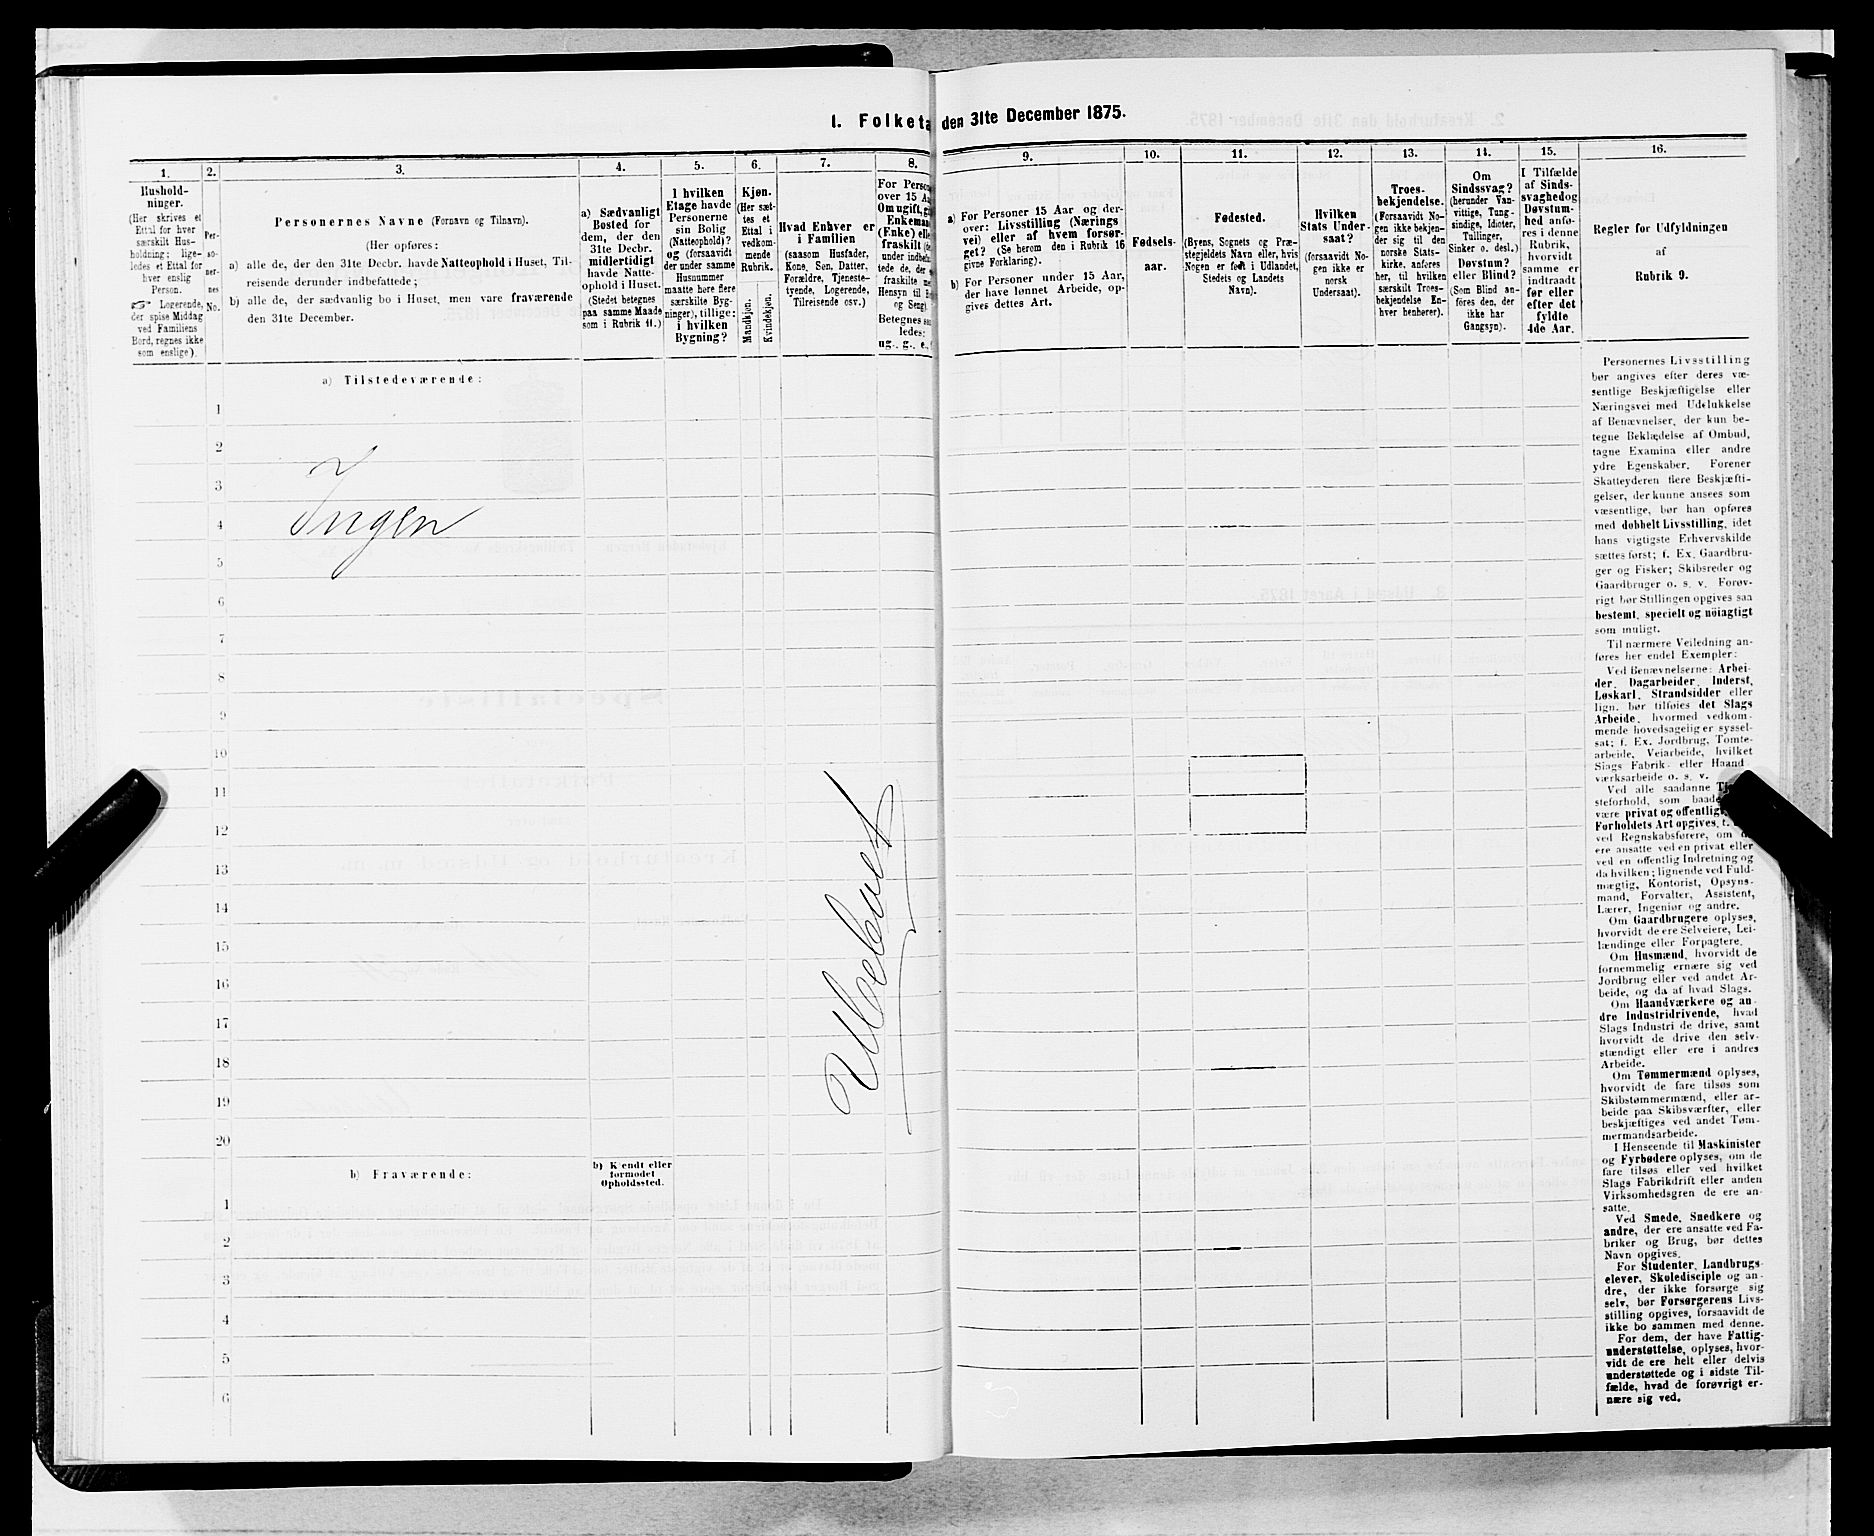 1. Folketa den 31te December 1875.
1.
Hushold-
ninger.
(Her skrives et
Ettal for hver
særskilt Hus-
holdning; lige-
ledes et Ettal for
hver enslig
Person.
☞ Logerende,
der spise Middag
ved Familiens
Bord, regnes ikke
som enslige).
2.
Per-
so-
ner-
nes
No.
3.
Personernes Navne (Fornavn og Tilnavn).
(Her opføres:
a) alle de, der den 31te Decbr. havde Natteophold i Huset, Til-
reisende derunder indbefattede;
b) alle de, der sædvanlig bo i Huset, men vare fraværende
den 31te December.
4.
a) Sædvanligt
Bosted for
dem, der den
31te Decbr.
midlertidigt
havde Natte-
ophold i Huset.
(Stedet betegnes
paa samme Maade
som i Rubrik 11.)
5.
I hvilken
Etage havde
Personerne
sin Bolig
(Natteophold)?
og (forsaavidt
der under samme
Husnummer
maatte høre flere
særskilte Byg-
ninger), tillige:
i hvilken
Bygning?
6.
Kjøn.
(Her sæt-
tes et
Ettal i
vedkom-
mende
Rubrik.
Mandkjøn.
Kvindekjøn.
7.
Hvad Enhver er
i Familien
(saasom Husfader,
Kone, Søn, Datter,
Forældre, Tjeneste-
tyende, Logerende,
Tilreisende osv.)
8.
For Perso
over 15 Aa
Om ugift, g
Enkeman
(Enke) ell
fraskilt
under indbefa
tede de, der
fraskilte
Hensyn til
og Seng)
Betegnes
ledes:
ug., g., e.,
9.
a) For Personer 15 Aar og der-
over: Livsstilling (Nærings
vei) eller af hvem forsør-
get? (Se herom den i Rubrik 16
givne Forklaring).
b) For Personer under 15 Aar,
der have lønnet Arbeide, op-
gives dettes Art.
10.
Fødsels-
aar.
11.
Fødested.
(Byens, Sognets og Præ-
stegjeldets Navn eller, hvis
Nogen er født i Udlandet,
Stedets og Landets
Navn).
12.
Hvilken
Stats Under-
saat?
(forsaavidt No-
gen ikke er
norsk
Undersaat).
13.
Troes-
bekjendelse.
(Forsaavidt No-
gen ikke bekjen-
der sig til den
norske Stats-
kirke, anføres
her, til hvilken
særskilt Troes-
bekjendelse En-
hver henhører).
14.
Om
Sindssvag?
(herunder Van-
vittige, Tung-
sindige, Idioter,
Tullinger,
Sinker o. desl.)
Døvstum?
eller Blind?
(Som Blind an-
føres den, der
ikke har
Gangsyn).
15.
I Tilfælde
af Sinds-
svaghedog
Døvstum-
hed anfø-
res i denne
Rubrik,
hvorvidt
samme er
indtraadt
før eller
efter det
fyldte
4de Aar.
16.
Regler for Udfyldningen
af
Rubrik 9.
a) Tilstedeværende:
1
2
3
4
5
6
7
8
9
10
11
12
13
14
15
16
17
18
19
20
Ingen
b) Fraværende:
b) Kjendt eller
formodet
Opholdssted.
1
2
3
4
5
6
Personernes Livsstilling
bør angives efter deres væ-
sentlige Beskjæftigelse eller
Næringsvei med Udelukkelse
af Benævnelser, der kun be-
tegne Beklædelse af Ombud,
tagne Examina eller andre
ydre Egenskaber. Forener
Skatteyderen flere Beskjæfti-
gelser, der kunne ansees som
væsentlige, bør han opføres
med dobbelt Livsstilling, idet
hans vigtigste Erhvervskilde
sættes først; f. Ex. Gaardbru-
ger og Fisker; Skibsreder og
Gaardbruger o. s. v. Forøv-
rigt bør Stillingen opgives saa
bestemt, specielt og nöiagtigt
som muligt.
Til nærmere Veiledning an-
føres her endel Exempler:
Ved Benævnelserne: Arbei-
der, Dagarbeider, Inderst,
Løskarl, Strandsidder eller
lign. bør tilføies det Slags
Arbeide, hvormed vedkom-
mende hovedsagelig er syssel-
sat; f. Ex. Jordbrug, Tomte-
arbeide, Veiarbeide, hvilket
Slags Fabrik- eller Haand
værksarbeide o. s. v.
Ved alle saadanne
steforhold, som baade
være privat og offentlig,
Forholdets Art opgives,
ved Regnskabsførere, om
ere ansatte ved en privat eller
ved en offentlig Indretning og
da hvilken; lignende ved Fuld-
mægtig, Kontorist, Opsyns-
mand, Forvalter, Assistent,
Lærer, Ingeniør og andre.
Om Gaardbrugere oplyses,
hvorvidt de ere Selveiere, Lei-
lændinge eller Forpagtere.
Om Husmænd, hvorvidt de
fornemmelig ernære sig ved
Jordbrug eller ved andet Ar-
beide, og da af hvad Slags.
Om Haandværkere og an-
dre Industridrivende, hvad
Slags Industri de drive, samt
hvorvidt de drive den selv-
stændigt eller ere i andres
Arbeide.
Om Tømmermænd oplyses,
hvorvidt de fare tilsøs som
Skibstømmermænd, eller ar-
beide paa Skibsværfter, eller
beskjæftiges ved andet Tøm-
mermandsarbeide.
I Henseende til Maskinister
og Fyrbødere oplyses, om de
fare tilsøs eller ved hvilket
Slags Fabrikdrift eller anden
Virksomhedsgren de ere an-
satte.
Ved Smede, Snedkere og
andre, der ere ansatte ved Fa-
briker og Brug, bør dettes
Navn opgives.
For Studenter, Landbrugs-
elever, Skoledisciple og an-
dre, der ikke forsørge sig
selv, bør Forsørgerens Livs-
stilling opgives, forsaavidt de
ikke bo sammen med denne.
For dem, der have Fattig-
understøttelse, oplyses, hvor-
vidt de ere helt eller delvis
understøttede og i sidste Til-
fælde, hvad de forøvrigt er-
nære sig ved.